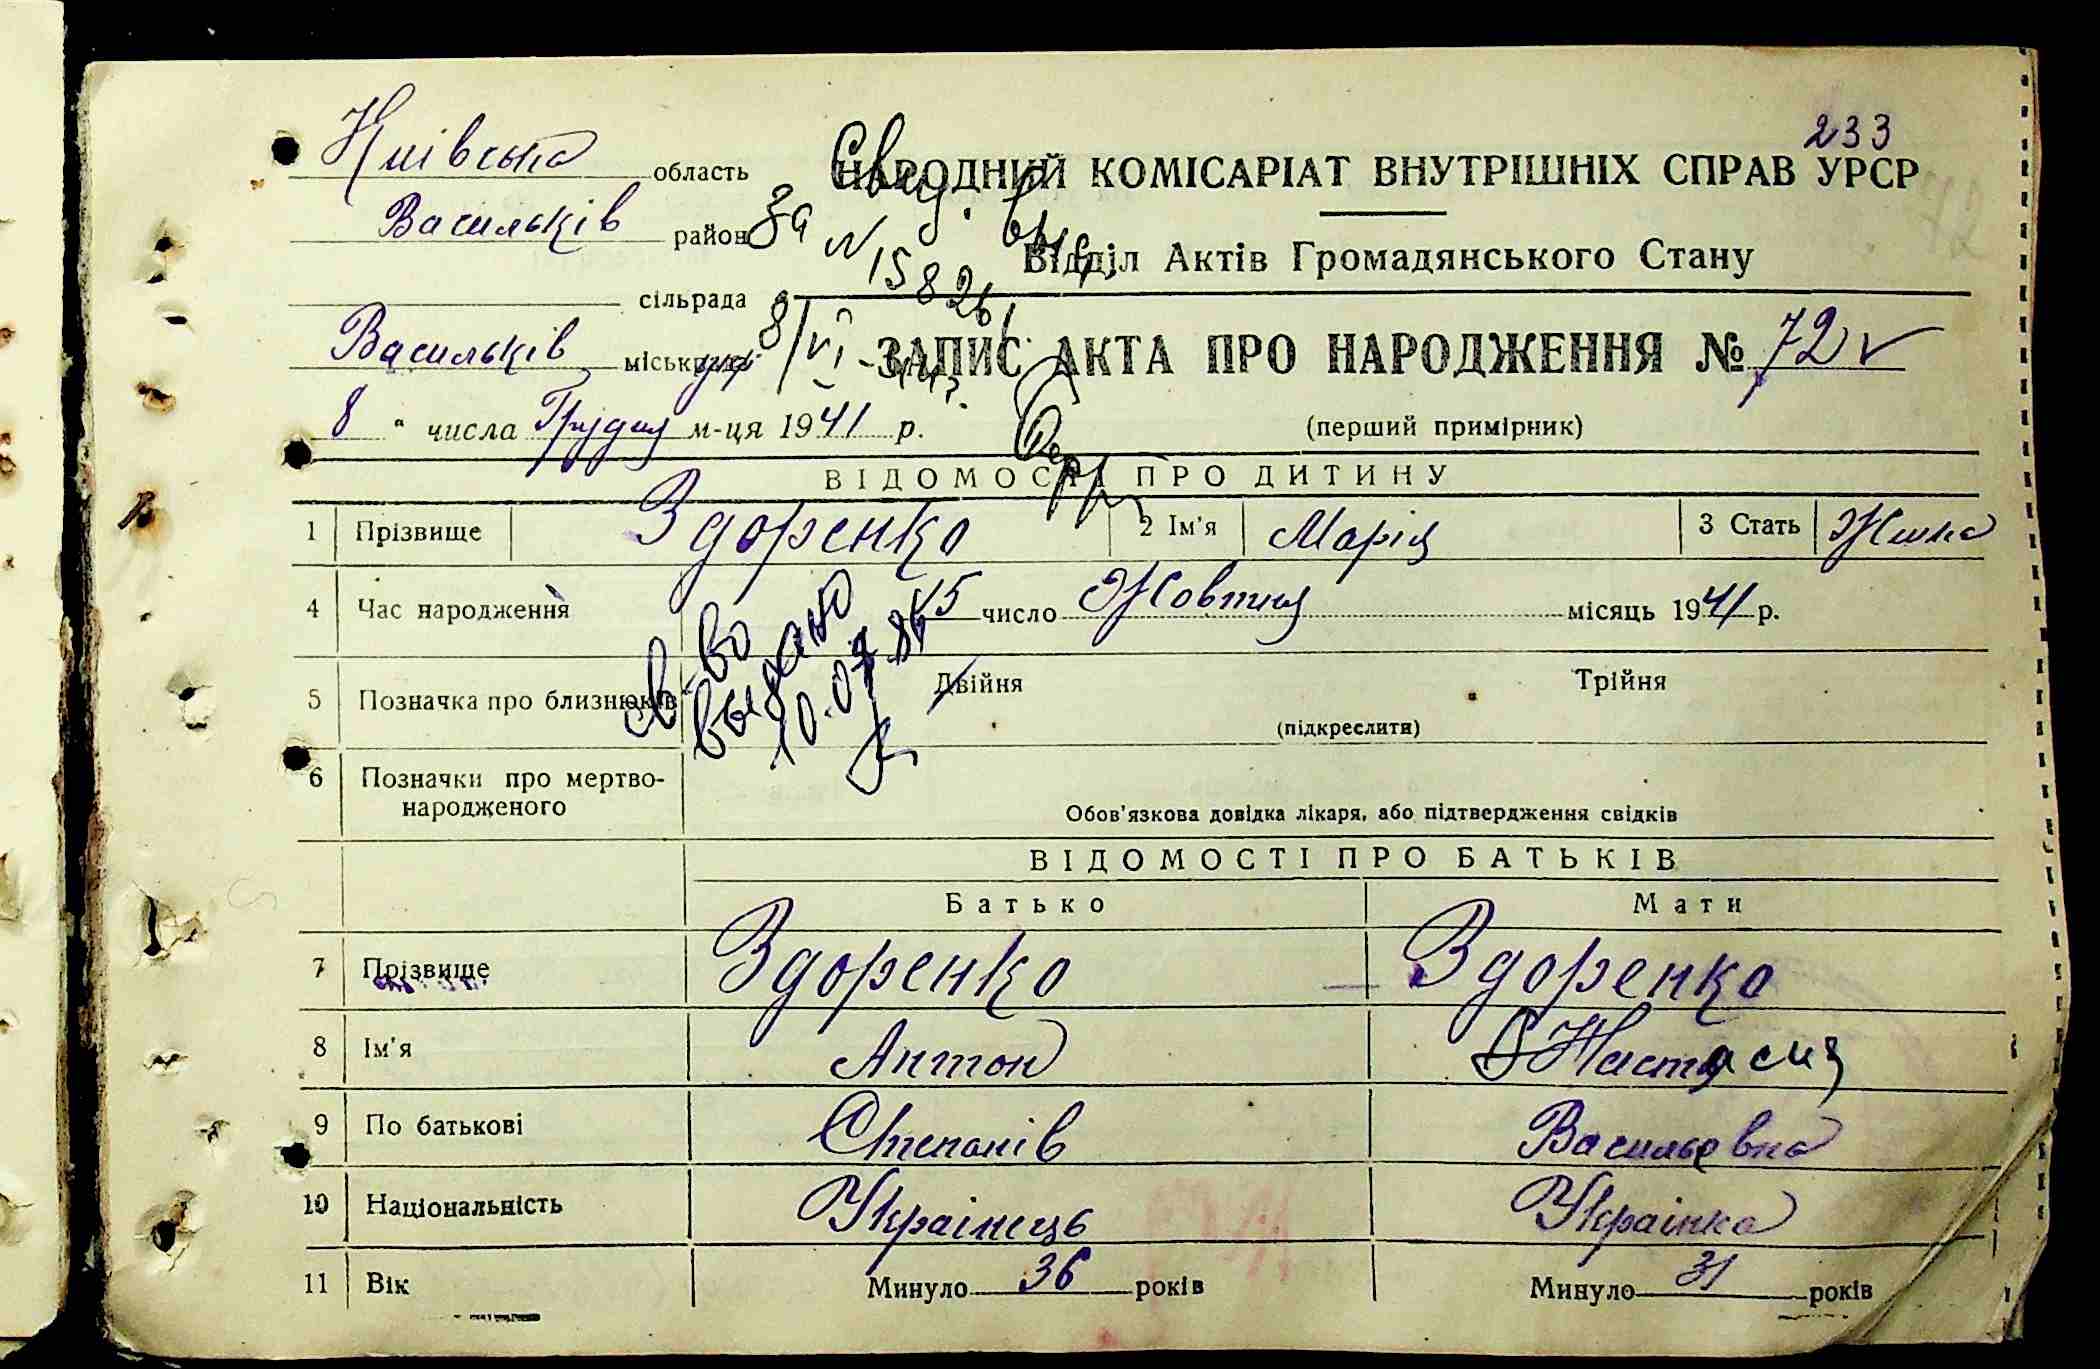 233
Київська область НАРОДНИЙ КОМІСАРІАТ ВНУТРІШНІХ СПРАВ УРСР
Васильків район
Відділ Актів Громадянського Стану
сільрада
Васильків міськрада
ЗАПИС АКТА ПРО НАРОДЖЕННЯ № 72
8 " числа Грудня м-ця 1941 р.
(перший примірник)
За № 15826
ВІДОМОСТІ ПРО ДИТИНУ
1 Прізвище Здоренко 2 Ім'я Марія 3 Стать Жінка
4 Час народження 15 число Жовтня місяць 1941 р.
св-во
выдано
10.07.86
5 Позначка про близнюків Двійня Трійня
(підкреслити)
6 Позначки про мертво-
народженого
Обов'язкова довідка лікаря, або підтвердження свідків
ВІДОМОСТІ ПРО БАТЬКІВ
Батько Мати
7 Прізвище Здоренко Здоренко
8 Ім'я Антон
9 По батькові Степанів Васильевна
10 Національність Українець Українка
11 Вік Минуло 36 років Минуло 31 років